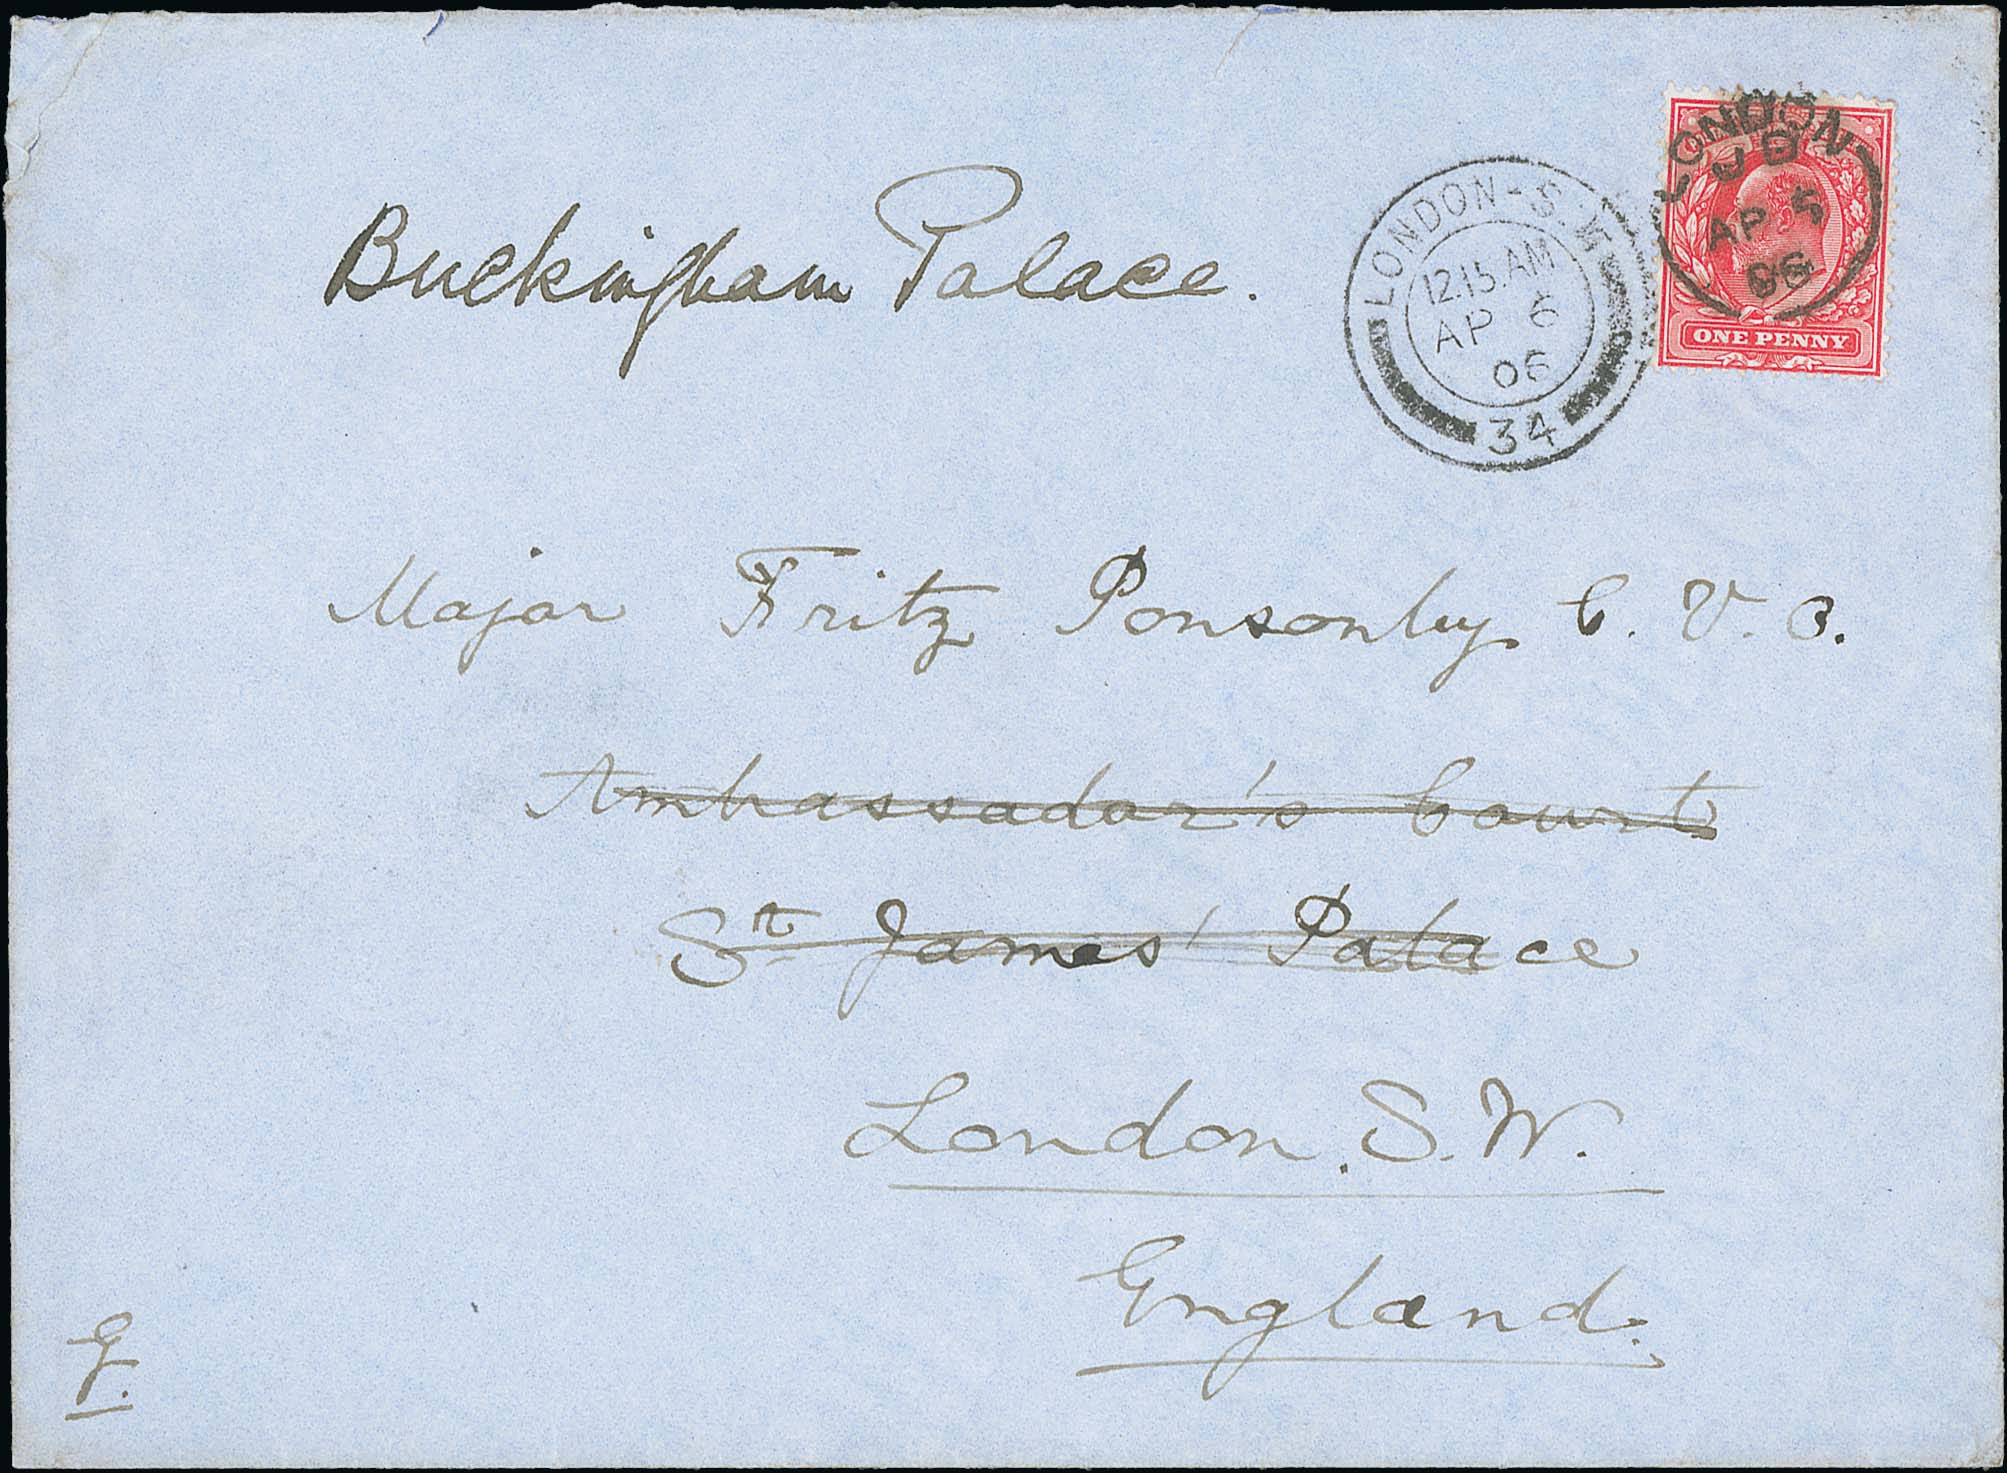 Buckingham Palace.
LONDON - S.W
12.15.AM
AP 6
06
34
LONDON
AP 5
06
ONE PENNY
Major Fritz Ponsonby C. V. O.
Ambassador's Court
St James' Palace
London. S. W.
England.
G.